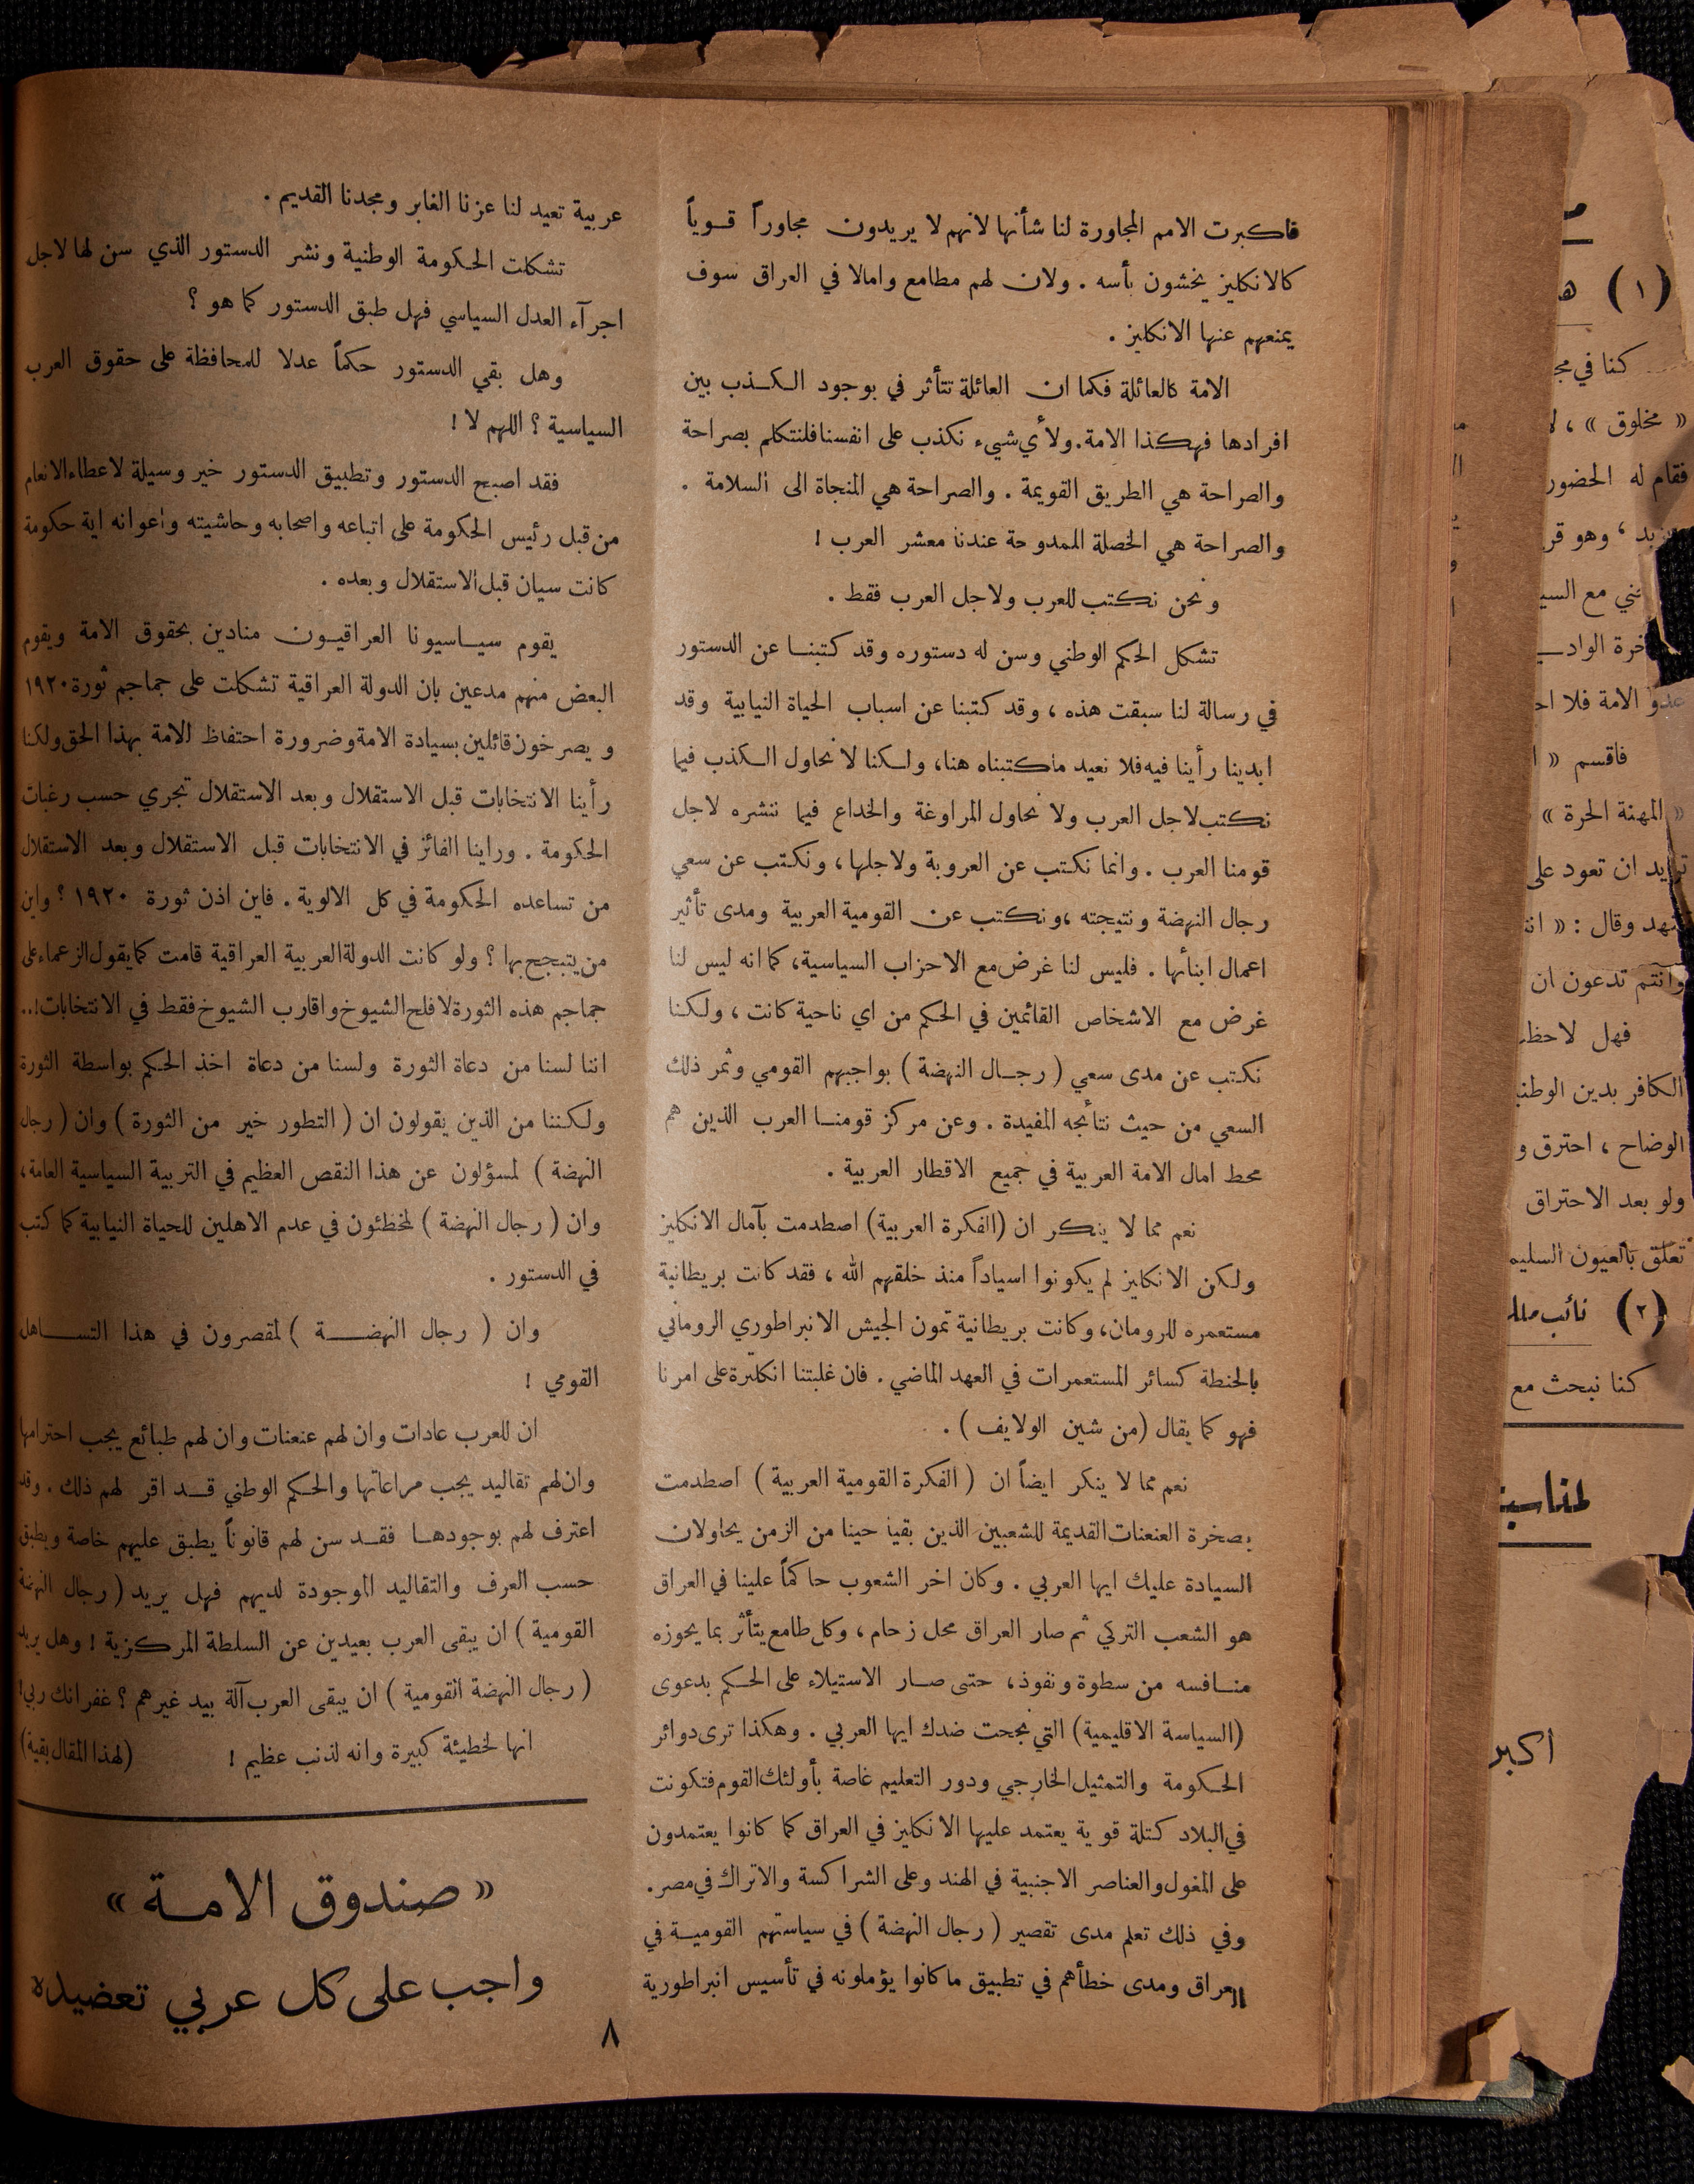 فاكبرت الامم المجاورة لنا شأنها لانهم لا يريدون مجاوراً قوياً
كالانكليز يخشون بأسه . ولان لهم مطامع وامالا في العراق سوف
يمنعهم عنها الانكليز .
الامة كالعائلة فكما ان العائلة تتأثر في بوجود الكذب بين
افرادها فهكذا الامة . ولأي شيء نكذب على انفسنا فلنتكلم بصراحة
والصراحة هي الطريق القويمة . والصراحة هي المنجاة الى السلامة .
والصراحة هي الخصلة الممدوحة عندنا معشر العرب !
ونحن نكتب للعرب ولاجل العرب فقط .
تشكل الحكم الوطني وسن له دستوره وقد كتبنا عن الدستور
في رسالة لنا سبقت هذه ، وقد كتبنا عن اسباب الحياة النيابية وقد
ابدينا رأينا فيه فلا نعيد ماكتبناه هنا، ولكنا لا نحاول الكذب فيما
نكتب لاجل العرب ولا نحاول المراوغة والخداع فيما ننشره لاجل
قومنا العرب . وانما نكتب عن العروبة ولاجلها ، ونكتب عن سعي
رجال النهضة ونتيجته ، ونكتب عن القومية العربية ومدى تأثير
اعمال ابنائها . فليس لنا غرض مع الاحزاب السياسية، كما انه ليس لنا
غرض مع الاشخاص القائمين في الحكم من اي ناحية كانت ، ولكنا
نكتب عن مدى سعي ( رجال النهضة ) بواجبهم القومي وثمر ذلك
السعي من حيث نتائجه المفيدة . وعن مركز قومنا العرب الذين هم
محط امال الامة العربية في جميع الاقطار العربية .
نعم مما لا ينكر ان (الفكرة العربية) اصطدمت بآمال الانكليز
ولكن الانكليز لم يكونوا اسياداً منذ خلقهم الله ، فقد كانت بريطانية
مستعمره للرومان، وكانت بريطانية تمون الجيش الانبراطوري الروماني
بالحنطة كسائر المستعمرات في العهد الماضي . فان غلبتنا انكلترة على امرنا
فهو كما يقال (من شين الولايف ) .
نعم مما لا ينكر ايضاً ان ( الفكرة القومية العربية ) اصطدمت
بصخرة العنعنات القديمة للشعبين الذين بقيا حينا من الزمن يحاولان
السيادة عليك ايها العربي . وكان اخر الشعوب حاكماً علينا في العراق
هو الشعب التركي ثم صار العراق محل زحام ، وكل طامع يتأثر بما يحوزه
منافسه من سطوة ونفوذ، حتى صار الاستيلاء على الحكم بدعوى
(السياسة الاقليمية) التي نجحت ضدك ايها العربي . وهكذا ترى دوائر
الحكومة والتمثيل الخارجي ودور التعليم غاصة بأولئك القوم فتكونت
في البلاد كتلة قوية يعتمد عليها الانكليز في العراق كما كانوا يعتمدون
على المغول والعناصر الاجنبية في الهند وعلى الشراكسة والاتراك في مصر .
وفي ذلك تعلم مدى تقصير ( رجال النهضة ) في سياستهم القومية في
العراق ومدى خطأهم في تطبيق ماكانوا يؤملونه في تأسيس انبراطورية
عربية تعيد لنا عزنا الغابر ومجدنا القديم .
تشكلت الحكومة الوطنية ونشر الدستور الذي سن لها لاجل
اجرآء العدل السياسي فهل طبق الدستور كما هو ؟
وهل بقي الدستور حكماً عدلا للمحافظة على حقوق العرب
السياسية ؟ اللهم لا !
فقد اصبح الدستور وتطبيق الدستور خير وسيلة لاعطاء الانعام
من قبل رئيس الحكومة على اتباعه واصحابه وحاشيته واعوانه اية حكومة
كانت سيان قبل الاستقلال وبعده .
يقوم سياسيونا العراقيون منادين بحقوق الامة ويقوم
البعض منهم مدعين بان الدولة العراقية تشكلت على جماجم ثورة ١٩٢٠
ويصرخون قائلين بسيادة الامة وضرورة احتفاظ الامة بهذا الحق ولكنا
رأينا الانتخابات قبل الاستقلال وبعد الاستقلال تجري حسب رغبات
الحكومة . وراينا الفائز في الانتخابات قبل الاستقلال وبعد الاستقلال
من تساعده الحكومة في كل الالوية . فاين اذن ثورة ١٩٢٠ ؟ واين
من يتبجح بها ؟ ولو كانت الدولة العربية العراقية قامت كما يقول الزعماء على
جماجم هذه الثورة لافلح الشيوخ واقارب الشيوخ فقط في الانتخابات !..
اننا لسنا من دعاة الثورة ولسنا من دعاة اخذ الحكم بواسطة الثورة
ولكننا من الذين يقولون ان ( التطور خير من الثورة ) وان ( رجال
النهضة ) لمسؤلون عن هذا النقص العظيم في التربية السياسية العامة،
وان ( رجال النهضة ) لمخطئون في عدم الاهلين للحياة النيابية كما كتب
في الدستور .
وان ( رجال النهضة ) لمقصرون في هذا التساهل
القومي !
ان للعرب عادات وان لهم عنعنات وان لهم طبائع يجب احترامها
وان لهم تقاليد يجب مراعاتها والحكم الوطني قد اقر لهم ذلك . وقد
اعترف لهم بوجودها فقد سن لهم قانوناً يطبق عليهم خاصة ويطبق
حسب العرف والتقاليد الموجودة لديهم فهل يريد ( رجال النهضة
القومية ) ان يبقى العرب بعيدين عن السلطة المركزية ! وهل يريد
( رجال النهضة القومية ) ان يبقى العرب آلة بيد غيرهم ؟ غفرانك ربي!
انها لخطيئة كبيرة وانه لذنب عظيم ! (لهذا المقال بقية)
« صندوق الامة »
واجب على كل عربي تعضيده
٨
(١)
كنا في
« مخلوق » ،
فقام له الحضور
وهو
مع
الامة فلا
فاقسم «
« المهنة الحرة »
ان تعود على
وقال : «
وانتم تدعون ان
فهل
الكافر بدين
الوضاح ، احترق و
ولو بعد الاحتراق
تعلق بالعيون
(٢) نائب
كنا نبحث مع
اكبر